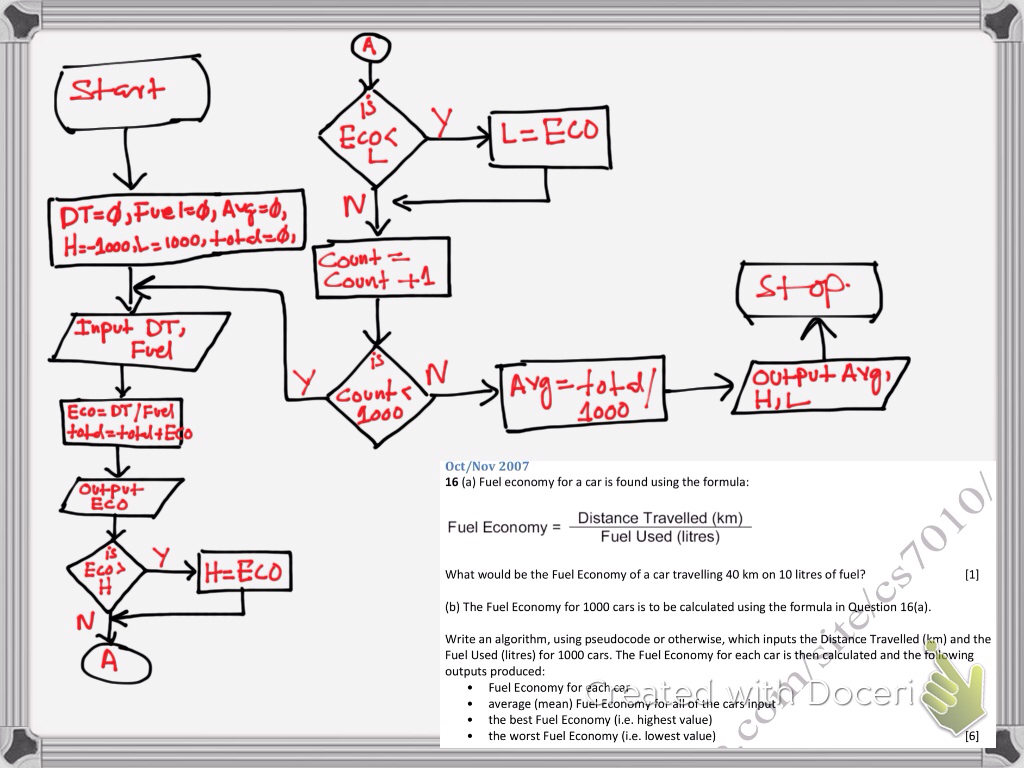 Start
DT=0, Fuel=0, Avg=0,
H=-1000, L=1000, total=0,
Input DT,
Fuel
Eco=DT/Fuel
total=total+Eco
Output
ECO
is
Eco>
H
Y
H=ECO
N
A
A
is
Eco<
L
Y
L=ECO
N
Count=
Count+1
is
Count<
1000
Y
N
Avg=total/
1000
Output Avg,
H, L
Stop.
Oct/Nov 2007
16 (a) Fuel economy for a car is found using the formula:
Fuel Economy = Distance Travelled (km)
Fuel Used (litres)
What would be the Fuel Economy of a car travelling 40 km on 10 litres of fuel? [1]
(b) The Fuel Economy for 1000 cars is to be calculated using the formula in Question 16(a).
Write an algorithm, using pseudocode or otherwise, which inputs the Distance Travelled (km) and the
Fuel Used (litres) for 1000 cars. The Fuel Economy for each car is then calculated and the following
outputs produced:
• Fuel Economy for each car
• average (mean) Fuel Economy for all of the cars input
• the best Fuel Economy (i.e. highest value)
• the worst Fuel Economy (i.e. lowest value) [6]
.com/site/cs7010/
Created with Doceri